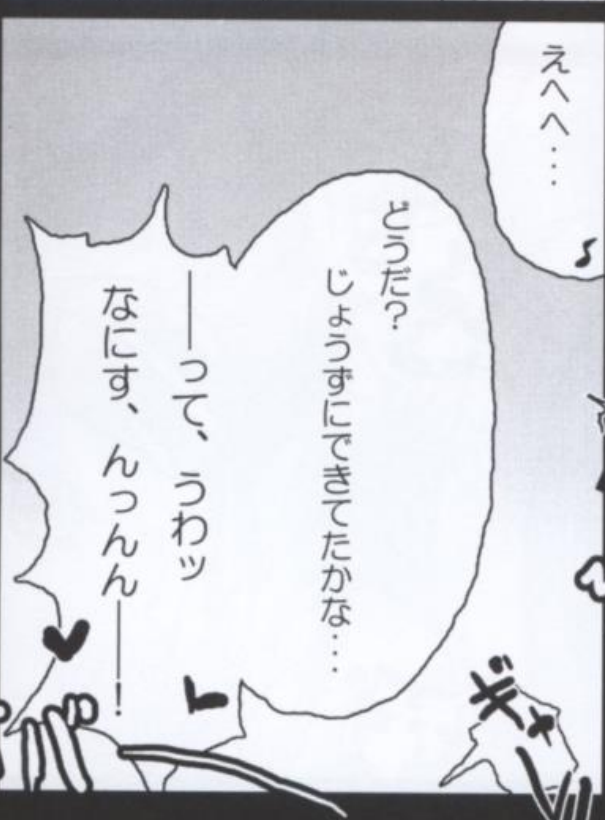 えへへ…
どうだ?
じょうずにできてたかな…
――って、うわッ
なにす、んっんん――!
ギャ